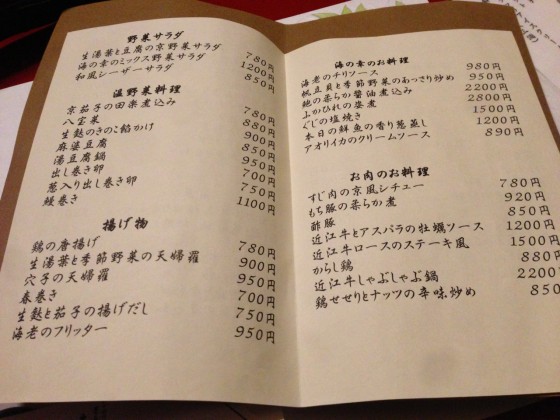 野菜サラダ
生湯葉と豆腐の京野菜サラダ 780円
海の幸のミックス野菜サラダ 1200円
和風レーザーサラダ 850円
温野菜料理
京茄子の田楽煮込み 780円
八宝菜 880円
生麩のきのこ餡かけ 900円
麻婆豆腐 850円
湯豆腐鍋 950円
出し巻き卵 700円
葱入り出し巻き卵 750円
鰻巻き 1100円
揚げ物
鶏の唐揚げ 780円
生湯葉と季節野菜の天婦羅 900円
穴子の天婦羅 950円
春巻き 700円
生麩と茄子の揚げだし 750円
海老のフリッター 950円
海の幸のお料理
海老のチリソース 980円
帆立貝と季節野菜のあっさり炒め 950円
鮑の柔らか醤油煮込み 2200円
上かひれの姿煮 2800円
ぐじの塩焼き 1500円
本日の鮮魚の香り葱蒸し 1200円
アオリイカのクリームソース 890円
お肉のお料理
すじ肉の京風シチュー 780円
もち豚の柔らか煮 920円
酢豚 850円
近江牛とアスパラの牡蠣ソース 1200円
近江牛ロースのステーキ風 1500円
からし鶏 880円
近江牛しゃぶしゃぶ鍋 2200円
鶏せせりとナッツの辛味炒め 850